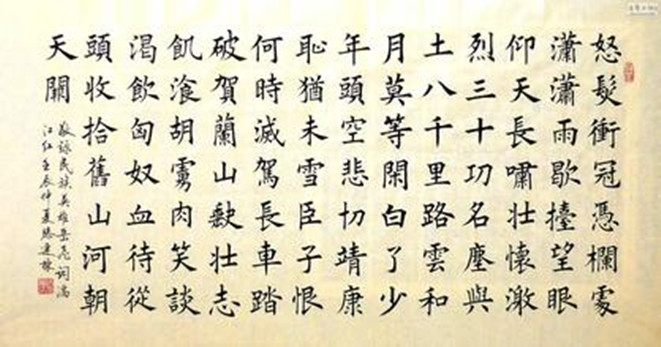 怒髮衝冠憑欄處
瀟瀟雨歇擡望眼
仰天長嘯壯懷激
烈三十功名塵與
土八千里路雲和
月莫等閑白了少
年頭空悲切靖康
恥猶未雪臣子恨
何時滅駕長車踏
破賀蘭山缺壯志
飢飡胡虜肉笑談
渴飲匈奴血待從
頭收拾舊山河朝
天闕
敬詠民族英雄岳飛詞滿
江紅壬辰仲夏